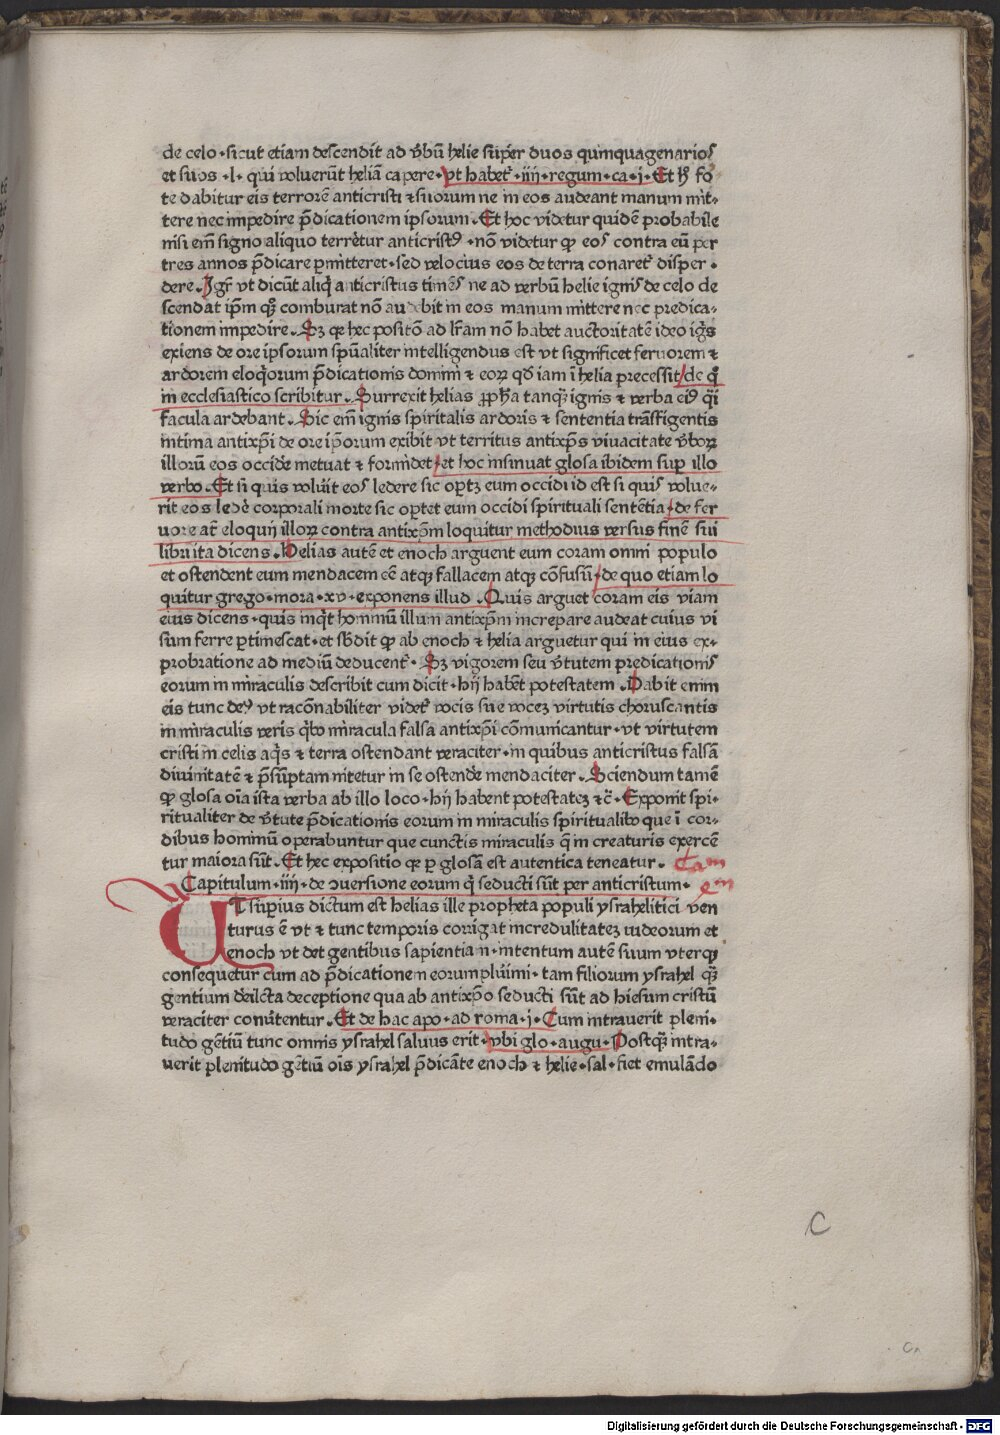 de celo·sicut etiam descendit ad v̄bū helie sup̄er duos quinquagenarios
et suos·l·qui voluerūt heliā capere·vt habet᷑·iiij·regum·ca·j·Et hͦ fo
te dabitur eis terrorē anticristi ⁊ suorum ne in eos audeant manum mit-
tere nec impedire p̄dicationem ipsorum·Et hoc videtur quidē probabile
nisi em̄ signo aliquo terrētur anticristꝰ·nō videtur ꝙ eos contra eū per
tres annos p̄dicare p̄mitteret·sed velocius eos de terra conaret᷑ disper·
dere·Igr̄ vt dicūt aliqͥ anticristus timēs ne ad verbum helie ignis de celo de
scendat ip̄m qꝫ comburat nō audebit in eos manum mittere nec predica-
tionem impedire·Sꝫ qꝛ hec positō ad lr̄am nō habet auctoritatē ideo igīs
exiens de ore ipsorum spūaliter intelligendus est vt significet feruorem ⁊
ardorem eloqͥorum p̄dicationis domini ⁊ eoꝝ qd̄ iam ī helia precessit de qͦ
in ecclesiastico scribitur·Surrexit helias ꝓph̄a tanqꝫ ignis ⁊ verba eiꝰ qͣi
facula ardebant·Sic em̄ ignis spiritalis ardoris ⁊ sententia trāsfigentis
intima antixp̄i de ore ip̄orum exibit vt territus antixp̄s viuacitate v̄boꝝ
illorū eos occidēe metuat ⁊ formidet et hoc insinuat glosa ibidem sup̄ illo
verbo·Et si quis volūit eos ledere sic oꝑtꝫ eum occidi id est si quis volue-
rit eos ledē corporali morte sic oꝑtet eum occidi spirituali sentētia de fer
uore at̄ eloquij illoꝝ contra antixp̄m loquitur methodius versus finē sui
libri ita dicens·Helias autē et enoch arguent eum coram omni populo
et ostendent eum mendacem cē atqꝫ fallacem atqꝫ cōfusū de quo etiam lo
quitur grego·mora·xv·exponens illud·Quis arguet coram eis viam
eius dicens·quis inqͥt hominū illum antixp̄m increpare audeat cuius vi
sum ferre ꝑtimescat·et sb̄dit ꝙ ab enoch ⁊ helia arguetur qui in eius ex·
probratione ad mediū deducent᷑·Sꝫ vigorem seu v̄tutem predicationis
eorum in miraculis describit cum dicit·hij habēt potestatem·Dabit enim
eis tunc deꝰ vt racōnabiliter videt᷑ vocis sue vocez virtutis choruscantis
in miraculis veris qͥbꝰ miracula falsa antixp̄i cōmunicantur·vt virtutem
cristi in celis aqͥs ⁊ terra ostendant veraciter·in quibus anticristus falsā
diuinitatē ⁊ p̄sūptam nitetur in se ostendēe mendaciter·Sciendum tamē
ꝙ glosa oīa ista verba ab illo loco·hij habent potestatez ⁊c̄·Exponit spi·
ritualiter de v̄tute p̄dicationis eorum in miraculis spiritualibꝰ que ī cor-
dibus hominū operabuntur que cunctis miraculis q̄ in creaturis exercē
tur maiora sūt·Et hec expositio qꝛ ꝑ glosā est autentica teneatur·Cam
Capitulum·iiij·de ↄuersione eorum qͥ seducti sūt per anticristum· em
UT sup̄ius dictum est helias ille propheta populi ysrahelitici ven
turus ē vt ⁊ tunc temporis corrigat incredulitatez iudeorum et
enoch vt det gentibus sapientiam·intentum autē suum vterqꝫ
consequetur cum ad p̄dicationem eorum plūimi·tam filiorum ysrahel qꝫ
gentium dēilcta deceptione qua ab antixp̄o seducti sūt ad hiesum cristū
veraciter conūtentur·Et de hac apo·ad roma·j·Cum intrauerit pleni·
tudo gētiū tunc omnis ysrahel saluus erit·vbi glo·augu·Postqꝫ intra·
uerit plenitudo gētiū oīs ysrahel p̄dicāte enoch ⁊ helie·sal·fiet emulādo
C
Digitalisierung gefördert durch die Deutsche Forschungsgemeinschaft - DFG